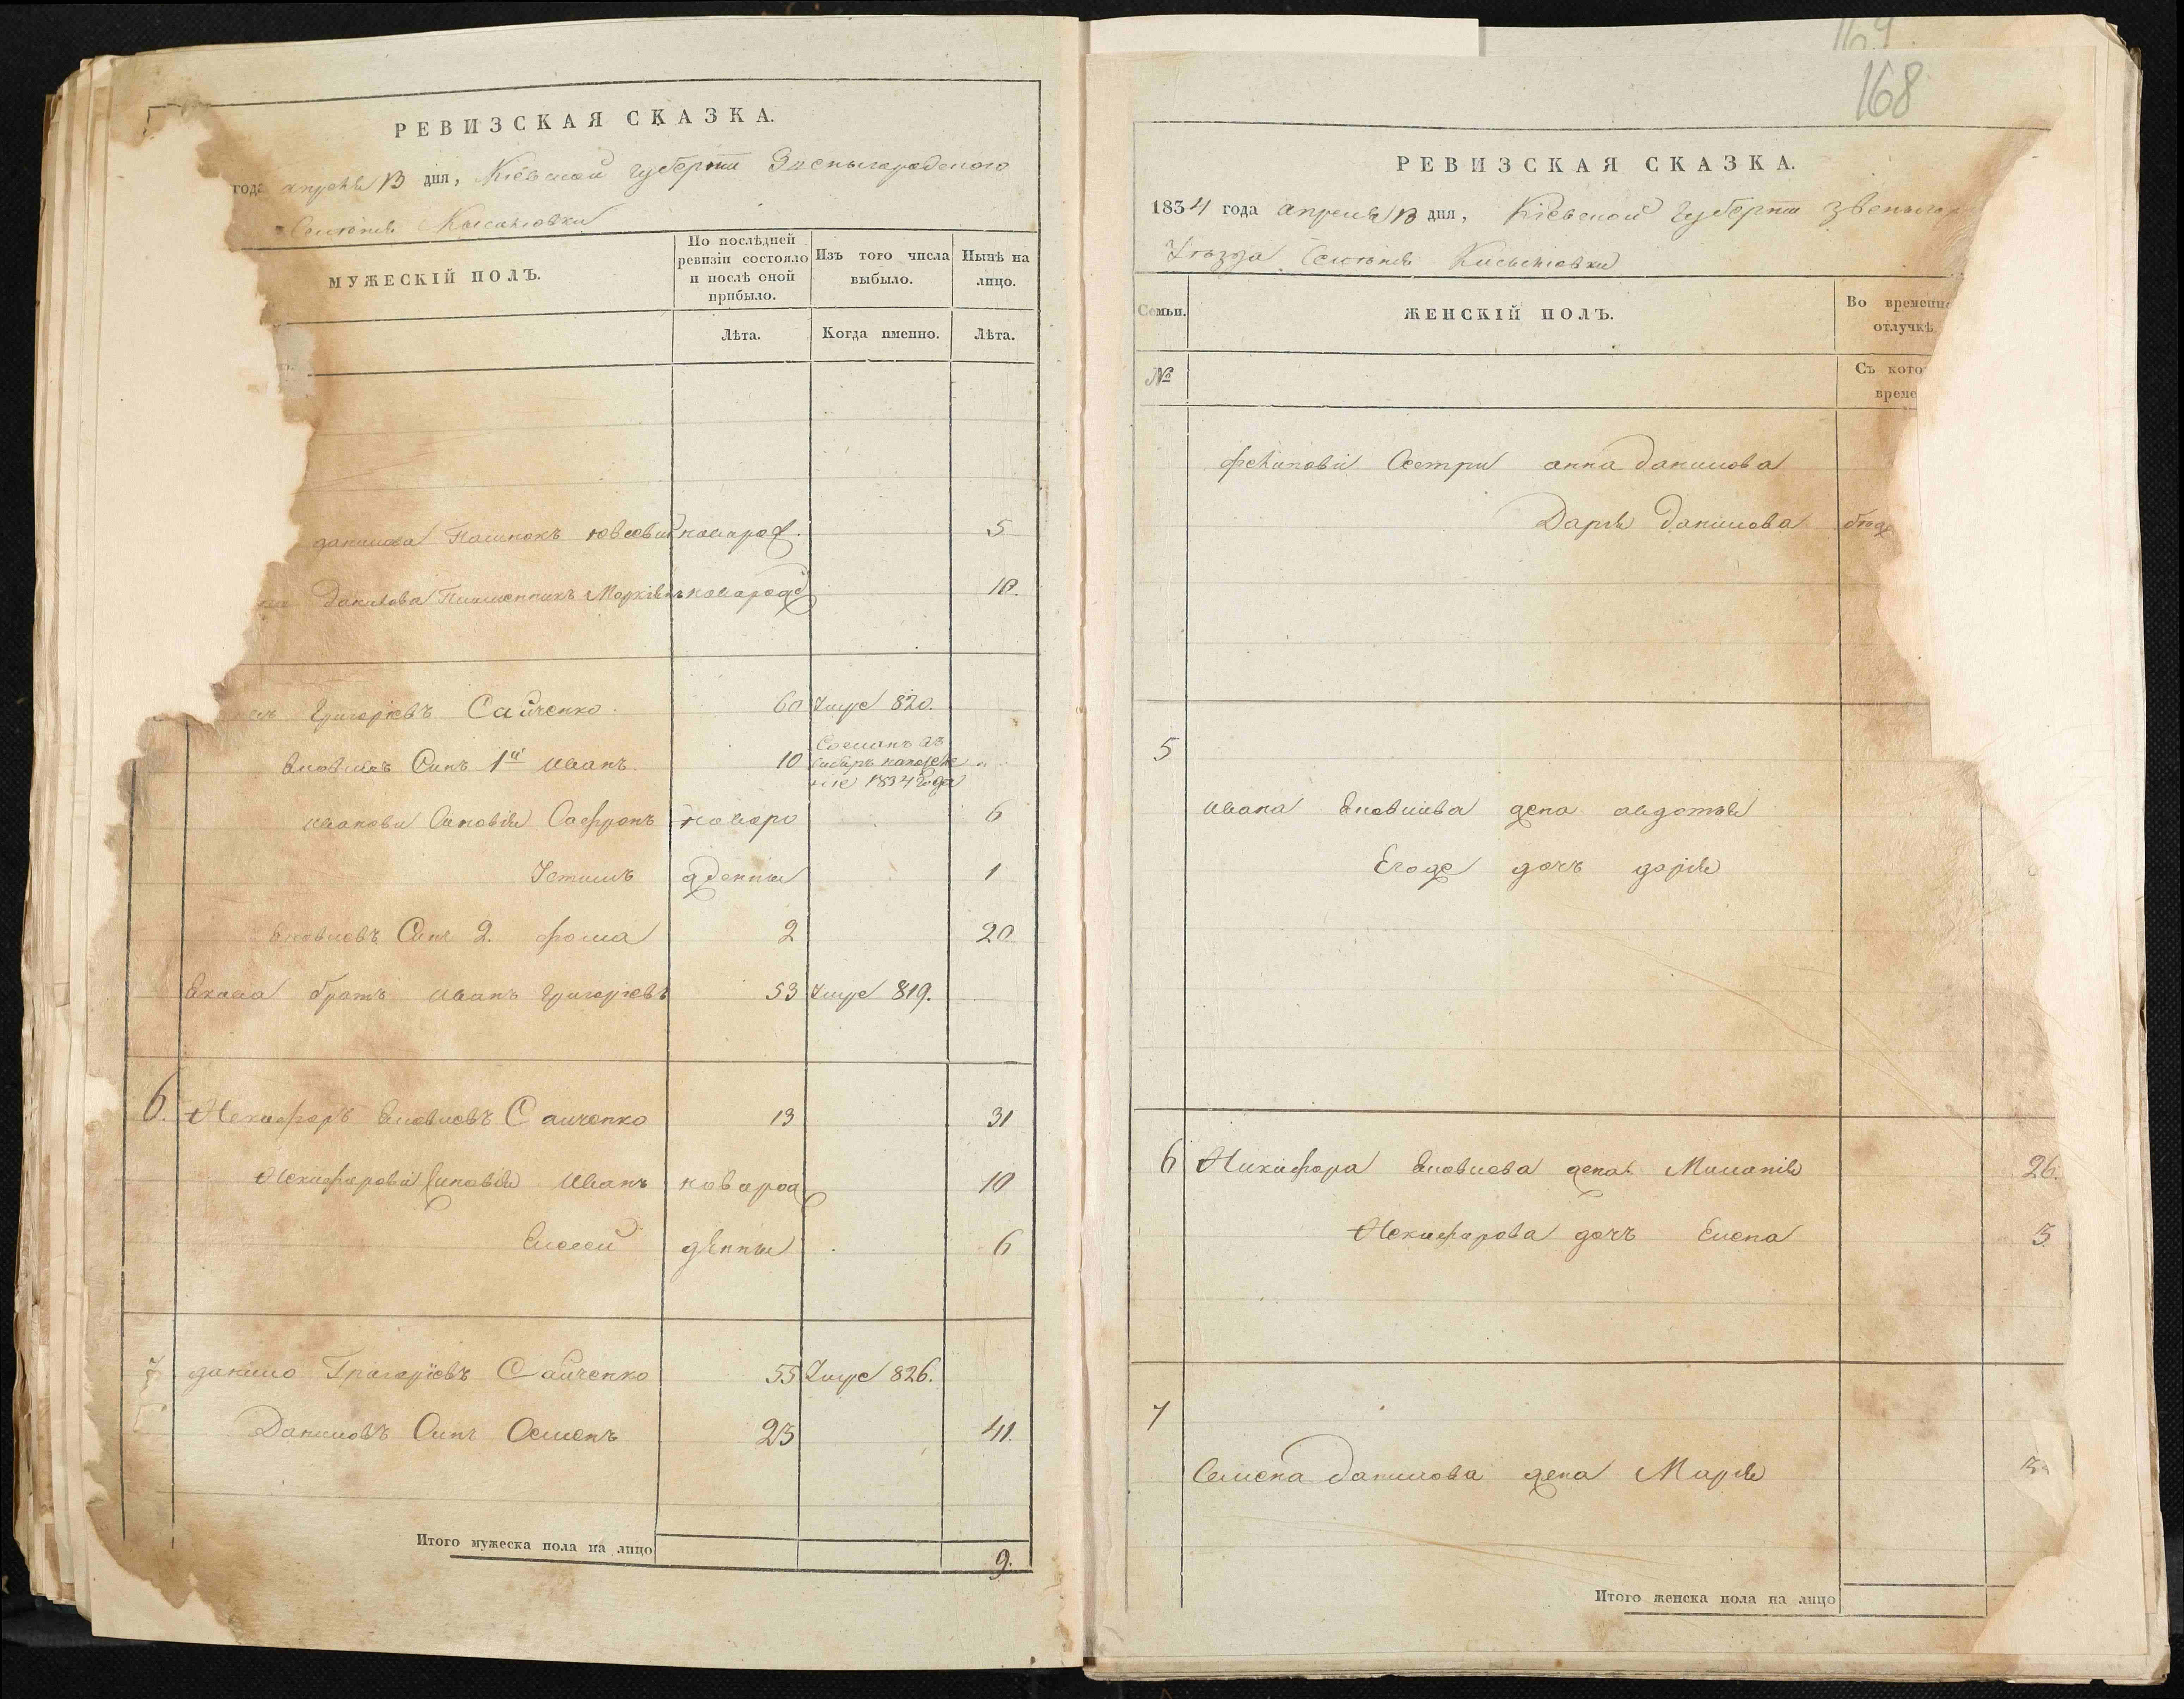 РЕВИЗСКАЯ СКАЗКА.
года апреля 13 дня, Кіевской губерніи Звенигородского
Селенія
МУЖЕСКІЙ ПОЛЪ.
По послѣдней ревизіи состояло и послѣ оной прибыло.
Изъ того числа выбыло.
Нынѣ на лицо.
Лѣта.
Когда именно.
Лѣта.
данилова новорож. 5
Данилова новорожд 10.
Григоріевъ Сайченко 60 Умре 820.
Яковлевъ Синъ 1й Иванъ 10 1834 Года
Иванови Синовія Сафронъ новоро 6
Устимъ жденни 1
Яковлевъ Синъ 2. Фома 2 20
братъ Иванъ Григоріевъ 53 Умре 819.
6. Некифоръ Яковлевъ Саиченко 13 31
Некифорови Синовія Иванъ новорож 10
Елесей денни 6
7 данило Григоріевъ Сайченко 55 Умре 826.
Даниловъ Синъ Семенъ 23 41.
Итого мужеска пола на лицо 9.
164
168
РЕВИЗСКАЯ СКАЗКА.
1834 года апреля 13 дня, Кіевской губерніи Звенигор
Уѣзда Селенія
Семьи.
ЖЕНСКІЙ ПОЛЪ.
Во временно
отлучкѣ
№
Съ кото
време
Сестри анна данилова
Дарія данилова
5
Ивана Яковлева жена авдотія
Егоже дочъ дарія
6 Никифора Яковлева жена Миланія 26.
Некифорова дочъ Елена 3
7
Семена данилова жена Марія
Итого женска пола на лицо